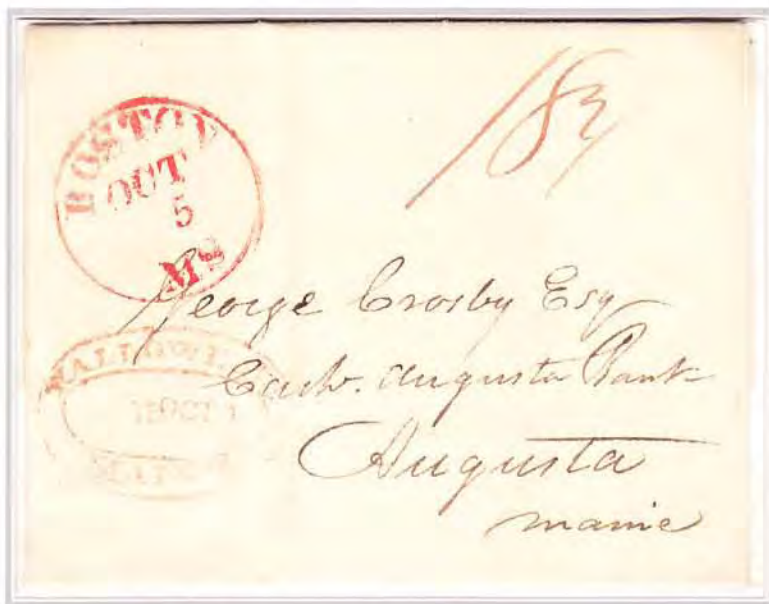 BOSTON
OCT
5
MS
18¾
HALLOWELL
OCT
George Crosby Esq
Cash. Augusta Bank
Augusta
maine